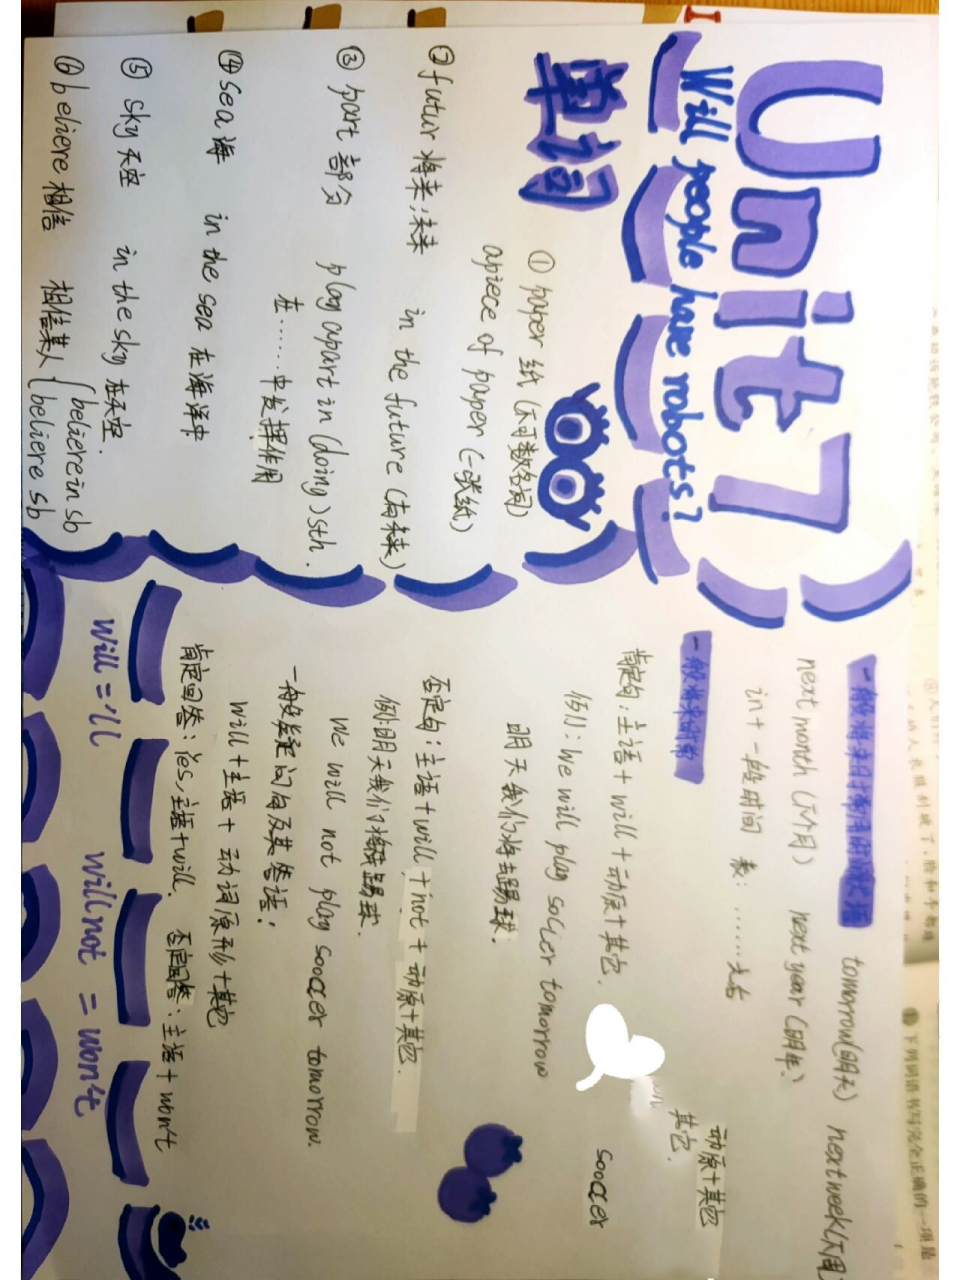 Unit 7
Will people have robots?
单词
① paper 纸 (不可数名词)
apiece of paper (一张纸)
② futur 将来;未来 in the future (在未来)
③ part 部分 play apart in (doing) sth.
在……中发挥作用
④ sea 海 in the sea 在海洋中
⑤ sky 天空 in the sky 在天空.
⑥ believe 相信 相信某人 { believein sb
believe sb
tomorrow(明天) next week(下周
next month (下个月) next year (明年)
in + 一段时间 表: ……之后
一般将来时常
肯定句: 主语 + will + 动原 + 其它.
例: We will play soccer tomorrow
明天我们将去踢球.
否定句: 主语 + will + not + 动原 + 其它.
例:明天我们不将踢球.
We will not play sooccer tomorrow.
一般疑问句及其答语:
will + 主语 + 动词原形 + 其它
肯定回答: Yes, 主语 + will. 否定回答: 主语 + won't
will = 'll will not = won't
动原 + 其它
其它.
sooccer
下列词语书写完全正确的一项是